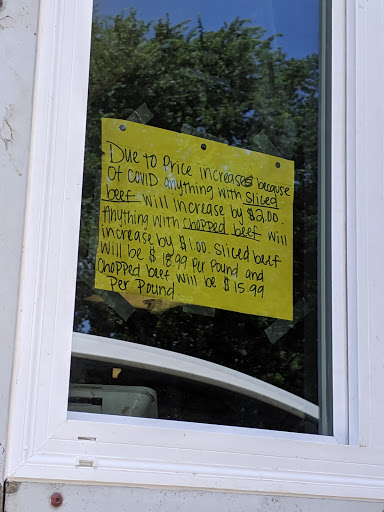 Due to Price increases because
Of COVID anything with sliced
beef will increase by $2.00.
Anything with chopped beef will
increase by $1.00. Sliced beef
will be $18.99 Per Pound and
Chopped beef will be $15.99
Per Pound